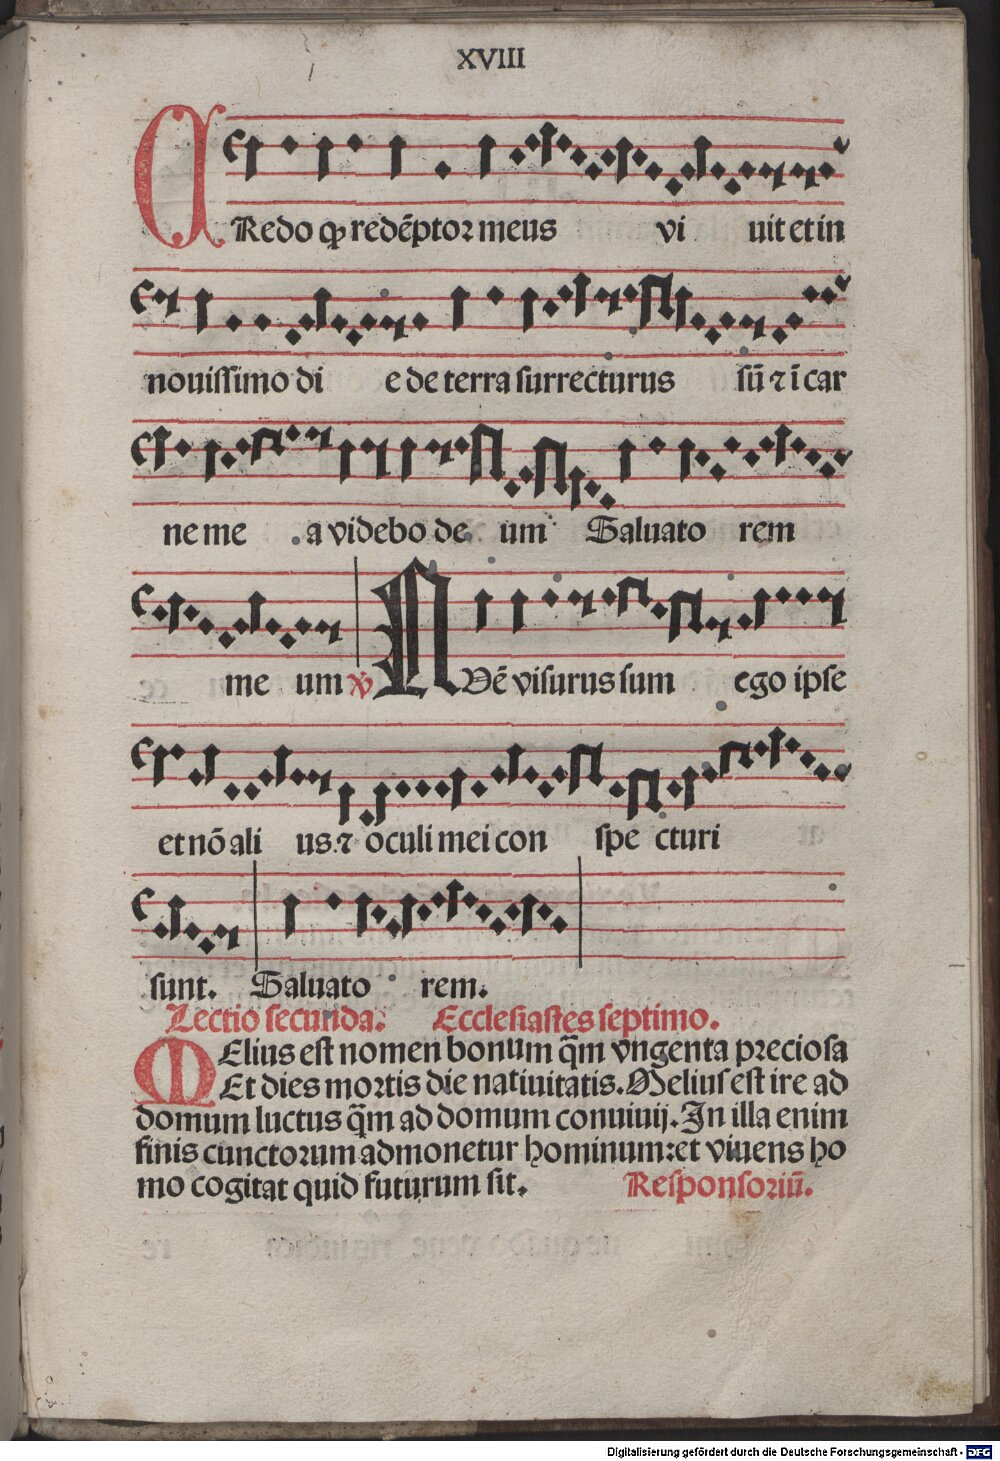 XVIII
CRedo ꝙ redẽptoꝛ meus vi uit et in
nouiſſimo di e de terra ſurrecturus ſũ ⁊ ĩ car
ne me a videbo de um Saluato rem
me um ℣ QUẽ viſurus ſum ego ipſe
et nõ ali us. ⁊ oculi mei con ſpe cturi
sunt. Saluato rem.
Lectio ſecunda. Eccleſiaſtes ſeptimo.
MElius eſt nomen bonum q̃m vngenta pꝛecioſa
Et dies moꝛtis die natiuitatis. Melius eſt ire ad
domum luctus q̃m ad domum conuiuij. In illa enim
finis cunctoꝛum admonetur hominum: et viuens ho
mo cogitat quid futurum ſit. Reſponſoꝛiũ.
Digitalisierung gefördert durch die Deutsche Forschungsgemeinschaft - DFG